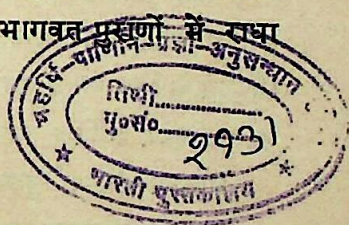 भागवत पुराणों में राधा
महर्षि-पाणिनि-प्रज्ञा-अनुसन्धान
तिथी..............
पु०सं०..............
२१३१
★ भारती पुस्तकालय ★